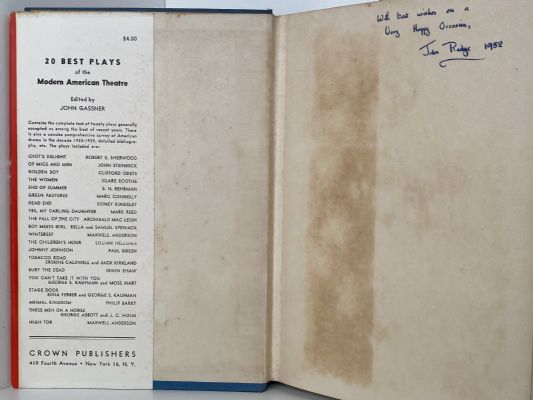 $4.00
20 BEST PLAYS
of the
Modern American Theatre
Edited by
JOHN GASSNER
Contains the complete text of twenty plays generally
accepted as among the best of recent years. There
is also a concise comprehensive survey of American
drama in the decade 1930-1939, detailed bibliogra-
phy, etc. The plays included are:
IDIOT'S DELIGHT ROBERT E. SHERWOOD
OF MICE AND MEN JOHN STEINBECK
GOLDEN BOY CLIFFORD ODETS
THE WOMEN CLARE BOOTHE
END OF SUMMER S. N. BEHRMAN
GREEN PASTURES MARC CONNELLY
DEAD END SIDNEY KINGSLEY
YES, MY DARLING DAUGHTER MARK REED
THE FALL OF THE CITY ARCHIBALD MAC LEISH
BOY MEETS GIRL BELLA and SAMUEL SPEWACK
WINTERSET MAXWELL ANDERSON
THE CHILDREN'S HOUR LILLIAN HELLMAN
JOHNNY JOHNSON PAUL GREEN
TOBACCO ROAD
ERSKINE CALDWELL and JACK KIRKLAND
BURY THE DEAD IRWIN SHAW
YOU CAN'T TAKE IT WITH YOU
GEORGE S. KAUFMAN and MOSS HART
STAGE DOOR
EDNA FERBER and GEORGE S. KAUFMAN
ANIMAL KINGDOM PHILIP BARRY
THREE MEN ON A HORSE
GEORGE ABBOTT and J. C. HOLM
HIGH TOR MAXWELL ANDERSON
CROWN PUBLISHERS
419 Fourth Avenue • New York 16, N. Y.
With best wishes on a
Very Happy Occasion,
John 1952